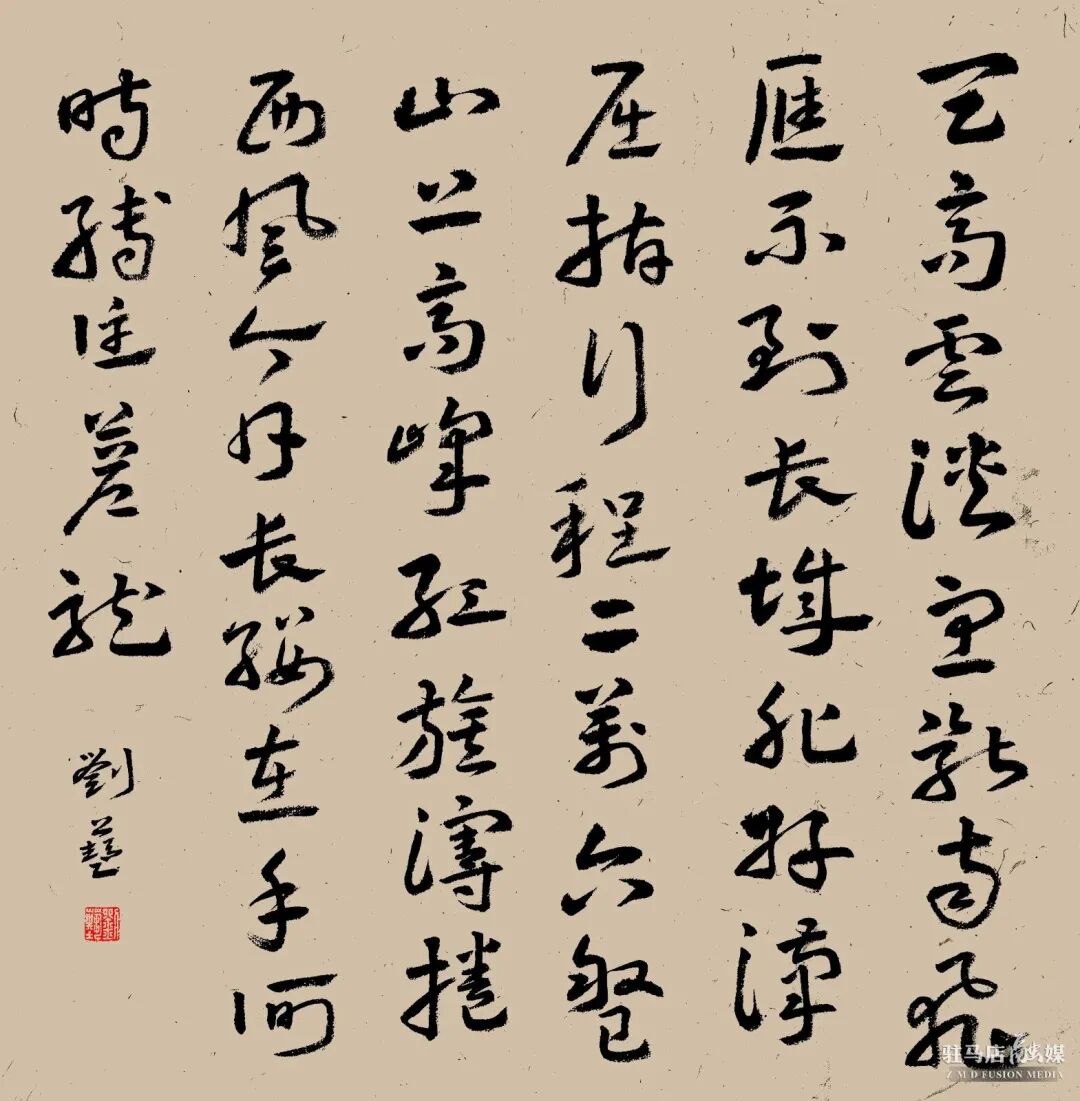 天高雲淡望斷南飛
雁不到長城非好漢
屈指行程二萬六盤
山上高峰紅旗漫捲
西風今日長纓在手何
時縛住蒼龍
劉藝
驻马店融媒
Z M D FUSION MEDIA